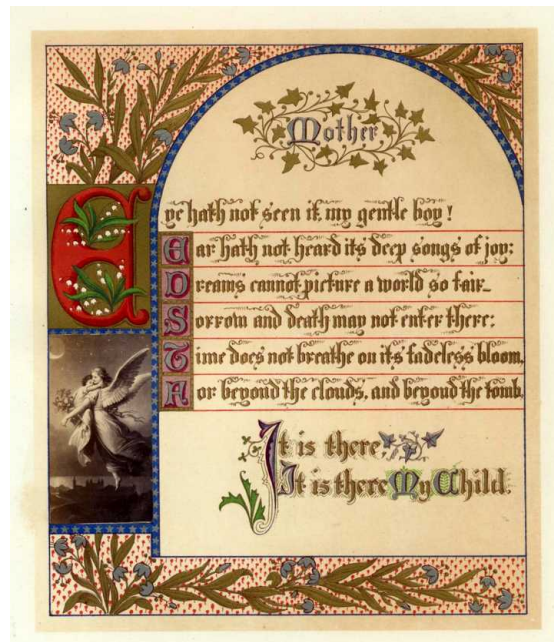 Mother
Eye hath not seen it, my gentle boy!
Ear hath not heard its deep songs of joy:
Dreams cannot picture a world so fair_
Sorrow and death may not enter there:
Time does not breathe on its fadeless bloom,
For beyond the clouds, and beyond the tomb.
It is there
It is there My Child.